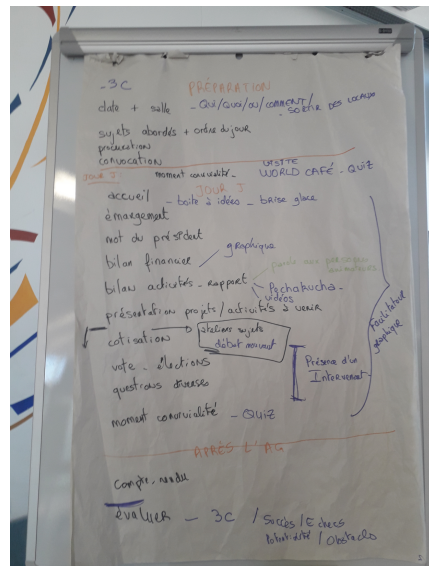 - 3C PRÉPARATION
date + salle - QUI/QUOI/OU/COMMENT/
- SORTIR DES LOCAUX
sujets abordés + ordre du jour
procuration
convocation
VISITE
JOUR J moment convivialité - WORLD CAFÉ - QUIZ
JOUR J
accueil - boite à idées - brise glace
émargement
mot du président
bilan financier / graphique
bilan activités - rapport
Pechakucha -
vidéos
présentation projets/activités à venir
cotisation → ateliers sujets
débat mouvant
vote - élections
questions diverses
Présence d'un
Intervenant
Facilitateur
graphique
moment convivialité - QUIZ
APRÈS L'AG
compte, rendu
évaluer - 3C / Succès / Echecs
Potentialité / Obstacles
2